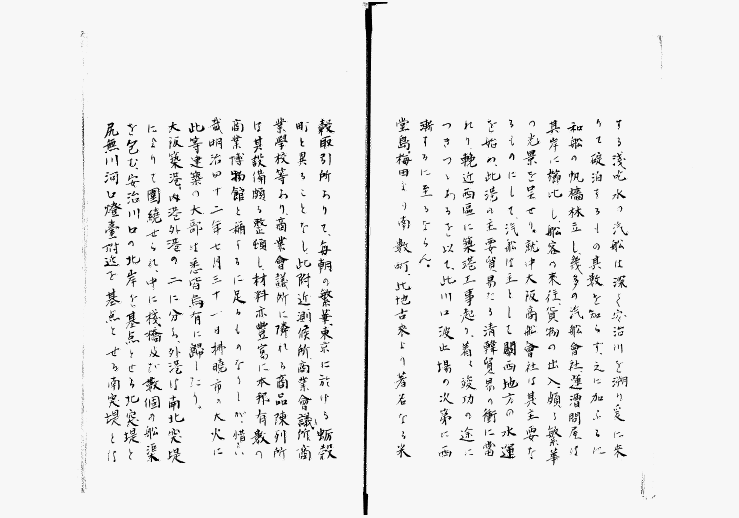 する淺吃水の汽船は深く安治川を溯り爰に來
りて碇泊するもの其数を知らず、之に加ふるに
和船の帆檣林立し幾多の汽船會社運漕問屋は
其岸に櫛比し船客の來往貨物の出入頗る繁華
の光景を呈せり、就中大阪商船會社は其主要な
るものにして汽船は主として關西地方の水運
を始め、此港の主要貿易たる清韓貿易の衝に當
れり、輓近西區に築港工事起り、着々竣功の途に
つきつゝあるを以て、此川口波止場の次第に西
漸するに至るならん。
堂島、梅田より南数町、此地古來より著名なる米
穀取引所ありて、毎朝の繁華東京に於ける蛎殻
町と異ることなし此附近測候所、商業會議所、商
業學校等あり、商業會議所に隣れる商品陳列所
は其設備頗る整頓し材料亦豊富に本邦有数の
商業博物館と稱するに足るものなりしが、惜い
哉明治四十二年七月三十一日拂曉市の大火に
此等建築の大部は悉皆烏有に歸したり。
大阪築港、内港外港の二に分る、外港は南北突堤
によりて圍繞せられ、中に棧橋及び数個の船渠
を包む、安治川口の北岸を基点とせる北突堤と
尻無川河口燈臺附近を基点とせる南突堤とは